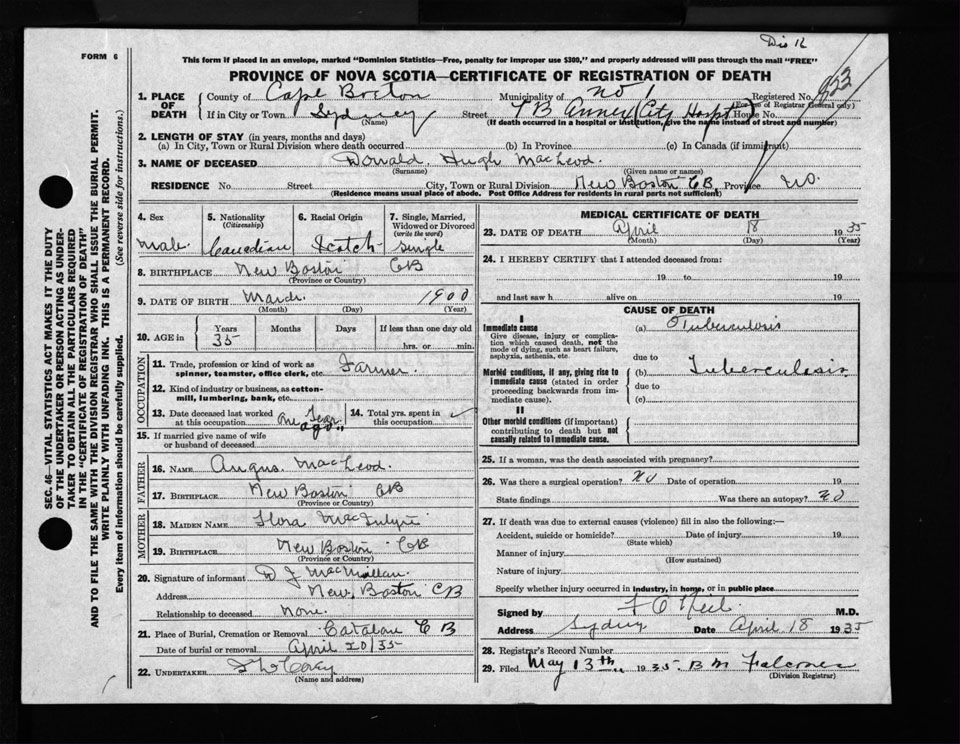 Dis 16
FORM 6
This form if placed in an envelope, marked "Dominion Statistics—Free, penalty for improper use $300," and properly addressed will pass through the mail "FREE"
PROVINCE OF NOVA SCOTIA—CERTIFICATE OF REGISTRATION OF DEATH
1. PLACE OF DEATH
County of Cape Breton Municipality of No 1 Registered No. 823
(For use of Registrar General only)
If in City or Town Sydney Street TB Annex (City Hospt) House No.
(Name) (If death occurred in a hospital or institution, give the name instead of street and number)
2. LENGTH OF STAY (in years, months and days)
(a) In City, Town or Rural Division where death occurred (b) In Province (c) In Canada (if immigrant)
3. NAME OF DECEASED Donald Hugh MacLeod.
(Surname) (Given name or names)
RESIDENCE No. Street City, Town or Rural Division New Boston CB Province N.S.
(Residence means usual place of abode. Post Office Address for residents in rural parts not sufficient)
SEC. 46—VITAL STATISTICS ACT MAKES IT THE DUTY
OF THE UNDERTAKER OR PERSON ACTING AS UNDER-
TAKER TO OBTAIN ALL THE PARTICULARS REQUIRED
IN THE "CERTIFICATE OF REGISTRATION OF DEATH"
AND TO FILE THE SAME WITH THE DIVISION REGISTRAR WHO SHALL ISSUE THE BURIAL PERMIT.
WRITE PLAINLY WITH UNFADING INK. THIS IS A PERMANENT RECORD.
Every item of information should be carefully supplied. (See reverse side for instructions.)
4. Sex
Male
5. Nationality
(Citizenship)
Canadian
6. Racial Origin
Scotch
7. Single, Married,
Widowed or Divorced
(write the word)
Single
8. BIRTHPLACE New Boston CB
(Province or Country)
9. DATE OF BIRTH March 1900
(Month) (Day) (Year)
10. AGE in Years Months Days If less than one day old
35 hrs. or min.
OCCUPATION
11. Trade, profession or kind of work as
spinner, teamster, office clerk, etc. Farmer.
12. Kind of industry or business, as cotton-
mill, lumbering, bank, etc.
13. Date deceased last worked
at this occupation One Year ago"
14. Total yrs. spent in
this occupation
15. If married give name of wife
or husband of deceased
FATHER
16. NAME Angus MacLeod.
17. BIRTHPLACE New Boston CB
(Province or Country)
MOTHER
18. MAIDEN NAME Flora MacIntyre
19. BIRTHPLACE New Boston CB
(Province or Country)
20. Signature of informant D J MacMillan.
Address New Boston CB
Relationship to deceased None.
21. Place of Burial, Cremation or Removal Catalone C B
Date of burial or removal April 20/35
22. UNDERTAKER
(Name and address)
MEDICAL CERTIFICATE OF DEATH
23. DATE OF DEATH April 18 1935
(Month) (Day) (Year)
24. I HEREBY CERTIFY that I attended deceased from:
19 to 19
and last saw h alive on 19
CAUSE OF DEATH
I
Immediate cause (a) Tuberculosis
Give disease, injury or complica-
tion which caused death, not the
mode of dying, such as heart failure,
asphyxia, asthenia, etc.
due to
Morbid conditions, if any, giving rise to
immediate cause (stated in order
proceeding backwards from im-
mediate cause).
(b) Tuberculosis
due to
(c)
II
Other morbid conditions (if important)
contributing to death but not
causally related to immediate cause.
25. If a woman, was the death associated with pregnancy?
26. Was there a surgical operation? No Date of operation 19
State findings Was there an autopsy? No
27. If death was due to external causes (violence) fill in also the following:—
Accident, suicide or homicide? Date of injury 19
(State which)
Manner of injury
(How sustained)
Nature of injury
Specify whether injury occurred in industry, in home, or in public place
Signed by F O Neil. M.D.
Address Sydney Date April 18 1935
28. Registrar's Record Number
29. Filed May 13th 1935. B M Falconer
(Division Registrar)